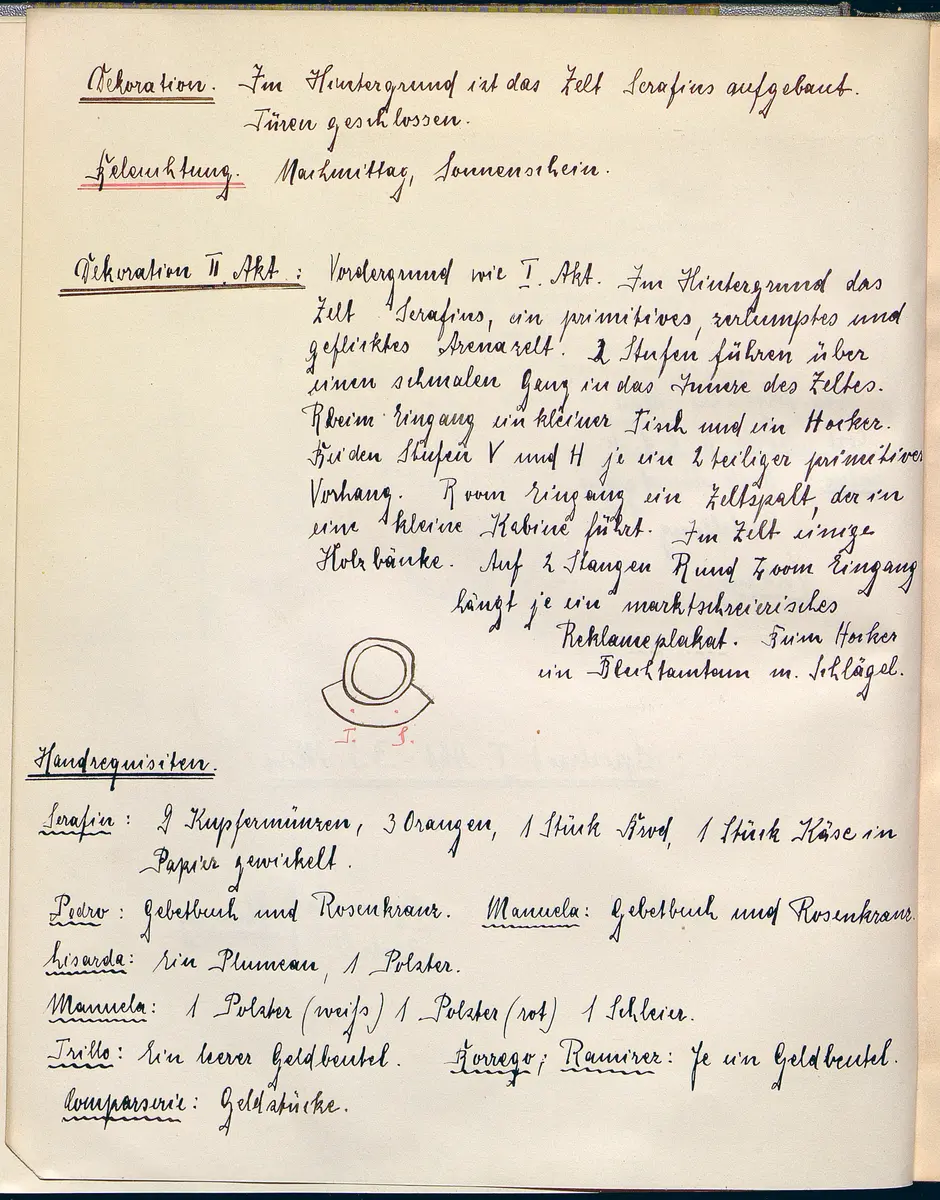 Dekoration. Im Hintergrund ist das Zelt Serafins aufgebaut.
Türen geschlossen.
Beleuchtung. Nachmittag, Sonnenschein.
Dekoration II. Akt : Vordergrund wie I. Akt. Im Hintergrund das
Zelt Serafins, ein primitives, zerlumptes und
geflicktes Arenazelt. 2 Stufen führen über
einen schmalen Gang in das Innere des Zeltes.
R beim Eingang ein kleiner Tisch und ein Hocker.
Bei den Stufen V und H je ein 2 teiliger primitiver
Vorhang. R vom Eingang ein Zeltspalt, der in
eine kleine Kabine führt. Im Zelt einige
Holzbänke. Auf 2 Stangen R und L vom Eingang
hängt je ein marktschreierisches
Reklameplakat. Beim Hocker
ein Blechtamtam m. Schlägel.
T. S.
Handrequisiten.
Serafin : 9 Kupfermünzen, 3 Orangen, 1 Stück Brod, 1 Stück Käse in
Papier gewickelt.
Pedro : Gebetbuch und Rosenkranz. Manuela : Gebetbuch und Rosenkranz.
Lisarda : Ein Plumeau, 1 Polster.
Manuela : 1 Polster (weiß) 1 Polster (rot) 1 Schleier.
Trillo : Ein leerer Geldbeutel. Borrego ; Ramirez : Je ein Geldbeutel.
Comparserie : Geldstücke.